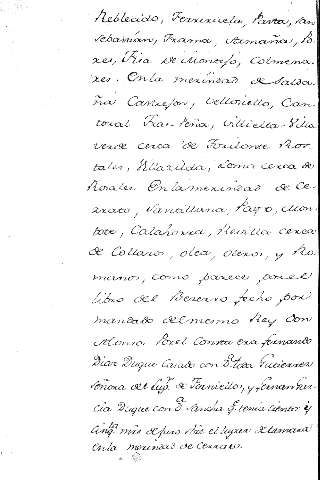 Rebledo, Ferreruela, Parta, San
Sebastian, Frama, Tamañas, Po-
xes, Fria de Montejo, Colmena-
res. En la merindad de Salda
ña Carrejon, Velloriello, Can-
toral Fras-Peña, Villielta-Villa
verde cerca de Fontonte Por
tales, Villasilda, Loma cerca de
Rosales. En la merindad de Ce-
rrato, Santillana, Payo, Mon-
tote, Calahorra, Revilla cerca
de Collaros, olea, oteros, y Ro-
manos, como parece, por el
libro del Becerro fecho por
mandado del mesmo Rey Don
Alonso. Por el Contra era Fernando
Diaz Duque Casado con D.ª Toda Gutierrez
Señora del lug.r de Torniellos, y Fernan Gar-
cia Duque con D.ª Sancha q.e tenia ciento y
cinq.ta mrs de juro sobre el lugar de tamara
en la merindad de Cerrato.